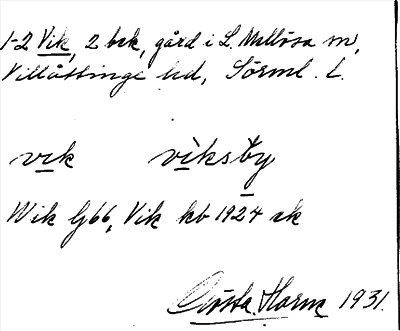 1-2 Vik, 2 bsk, gård i L. Mellösa sn,
Villåttinge hd, Sörml. L.
vik viksby
Wik Gj66, Vik kb 1924 ak
Gösta Harna 1931.